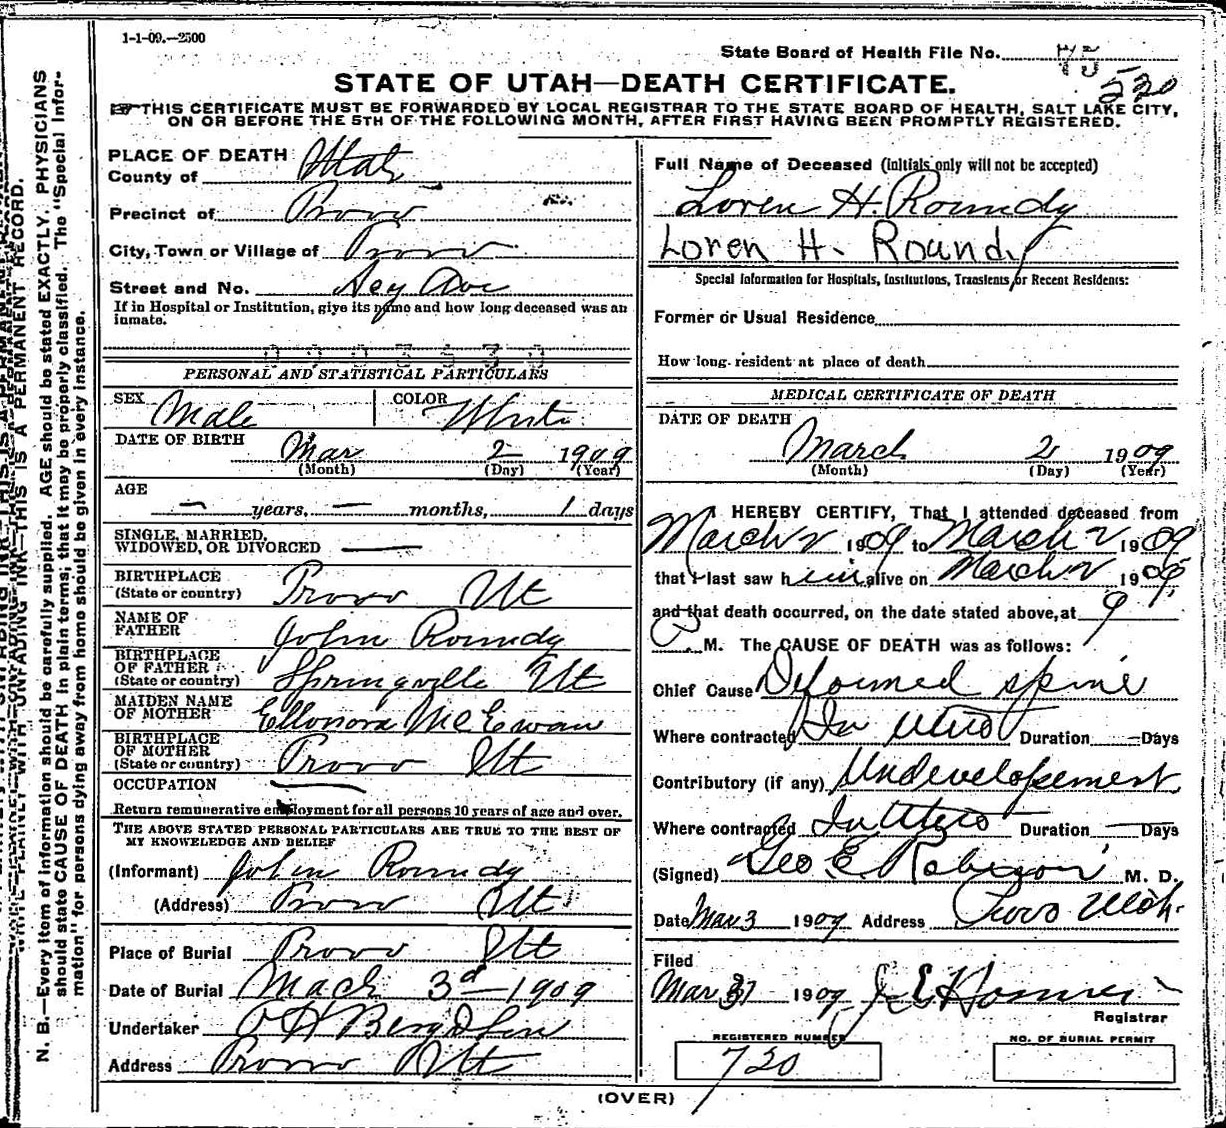 1-1-09.—2500
State Board of Health File No. 75
520
STATE OF UTAH—DEATH CERTIFICATE.
THIS CERTIFICATE MUST BE FORWARDED BY LOCAL REGISTRAR TO THE STATE BOARD OF HEALTH, SALT LAKE CITY,
ON OR BEFORE THE 5TH OF THE FOLLOWING MONTH, AFTER FIRST HAVING BEEN PROMPTLY REGISTERED.
N. B.—Every item of information should be carefully supplied. AGE should be stated EXACTLY. PHYSICIANS
should state CAUSE OF DEATH in plain terms; that it may be properly classified. The "Special Infor-
mation" for persons dying away from home should be given in every instance.
PLACE OF DEATH
County of Utah
Precinct of Provo
City, Town or Village of Provo
Street and No. Ave
If in Hospital or Institution, give its name and how long deceased was an
inmate.
PERSONAL AND STATISTICAL PARTICULARS
SEX Male COLOR White
DATE OF BIRTH Mar 2 1909
(Month) (Day) (Year)
AGE
— years, — months, 1 days
SINGLE, MARRIED,
WIDOWED, OR DIVORCED —
BIRTHPLACE
(State or country) Provo Ut
NAME OF
FATHER John Roundy
BIRTHPLACE
OF FATHER
(State or country) Springville Ut
MAIDEN NAME
OF MOTHER Ellonora McEwan
BIRTHPLACE
OF MOTHER
(State or country) Provo Ut
OCCUPATION —
Return remunerative employment for all persons 10 years of age and over.
THE ABOVE STATED PERSONAL PARTICULARS ARE TRUE TO THE BEST OF
MY KNOWLEDGE AND BELIEF
(Informant) John Roundy
(Address) Provo Ut
Place of Burial Provo Ut
Date of Burial Mach 3d 1909
Undertaker O H Berg & Son
Address Provo Ut
Full Name of Deceased (initials only will not be accepted)
Loren H. Roundy
Loren H. Roundy
Special Information for Hospitals, Institutions, Transients, or Recent Residents:
Former or Usual Residence
How long resident at place of death
MEDICAL CERTIFICATE OF DEATH
DATE OF DEATH
March 2 1909
(Month) (Day) (Year)
I HEREBY CERTIFY, That I attended deceased from
March 2 1909 to March 2 1909
that I last saw him alive on March 2 1909
and that death occurred, on the date stated above, at 9
P M. The CAUSE OF DEATH was as follows:
Chief Cause Deformed spine
Where contracted In Utero Duration — Days
Contributory (if any) Undevelopement
Where contracted In Utero Duration — Days
(Signed) Geo E Robison M. D.
Date Mar 3 1909 Address Provo Utah.
Filed
Mar 31 1909
Registrar
REGISTERED NUMBER
720
NO. OF BURIAL PERMIT
(OVER)